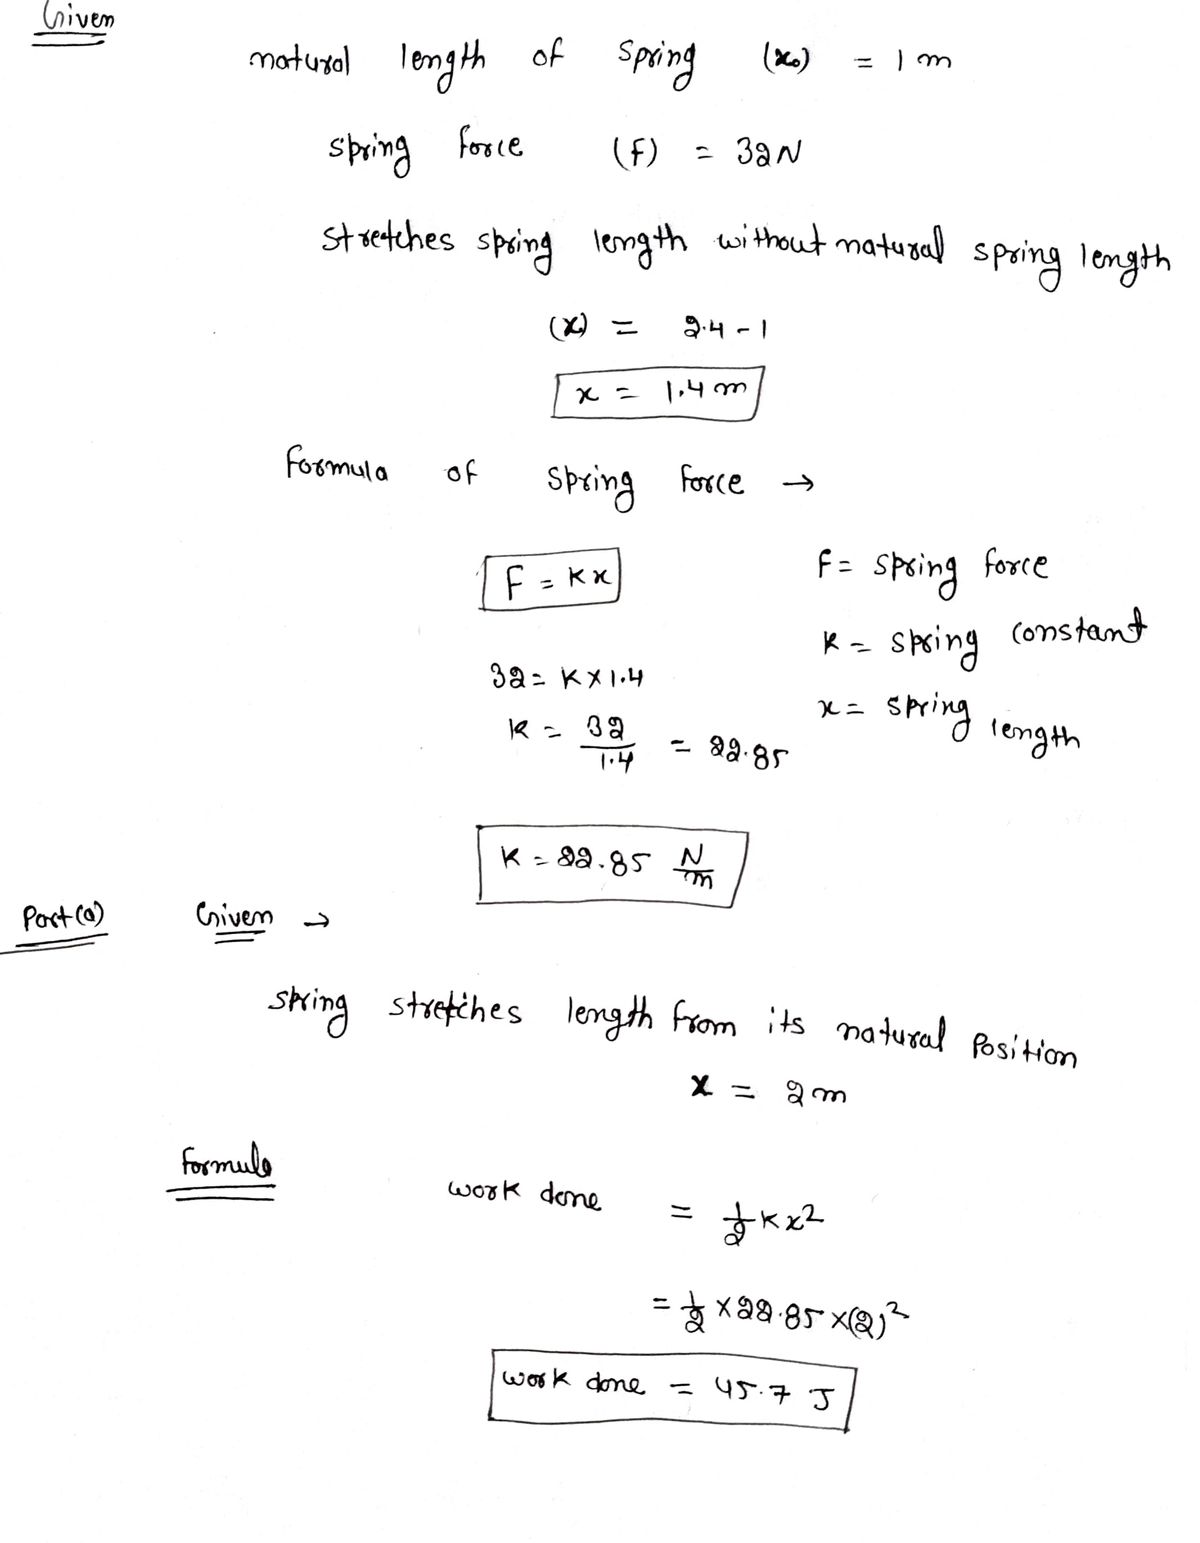 Given
natural length of spring (x₀) = 1 m
spring force (F) = 32 N
stretches spring length without natural spring length
(x) = 2.4 - 1
x = 1.4 m
formula of spring force →
F = Kx
F = spring force
K = spring constant
32 = K × 1.4
x = spring length
K = 32/1.4 = 22.85
K = 22.85 N/m
Part (a) Given →
spring stretches length from its natural position
x = 2 m
Formula
work done = 1/2 K x²
= 1/2 × 22.85 × (2)²
work done = 45.7 J